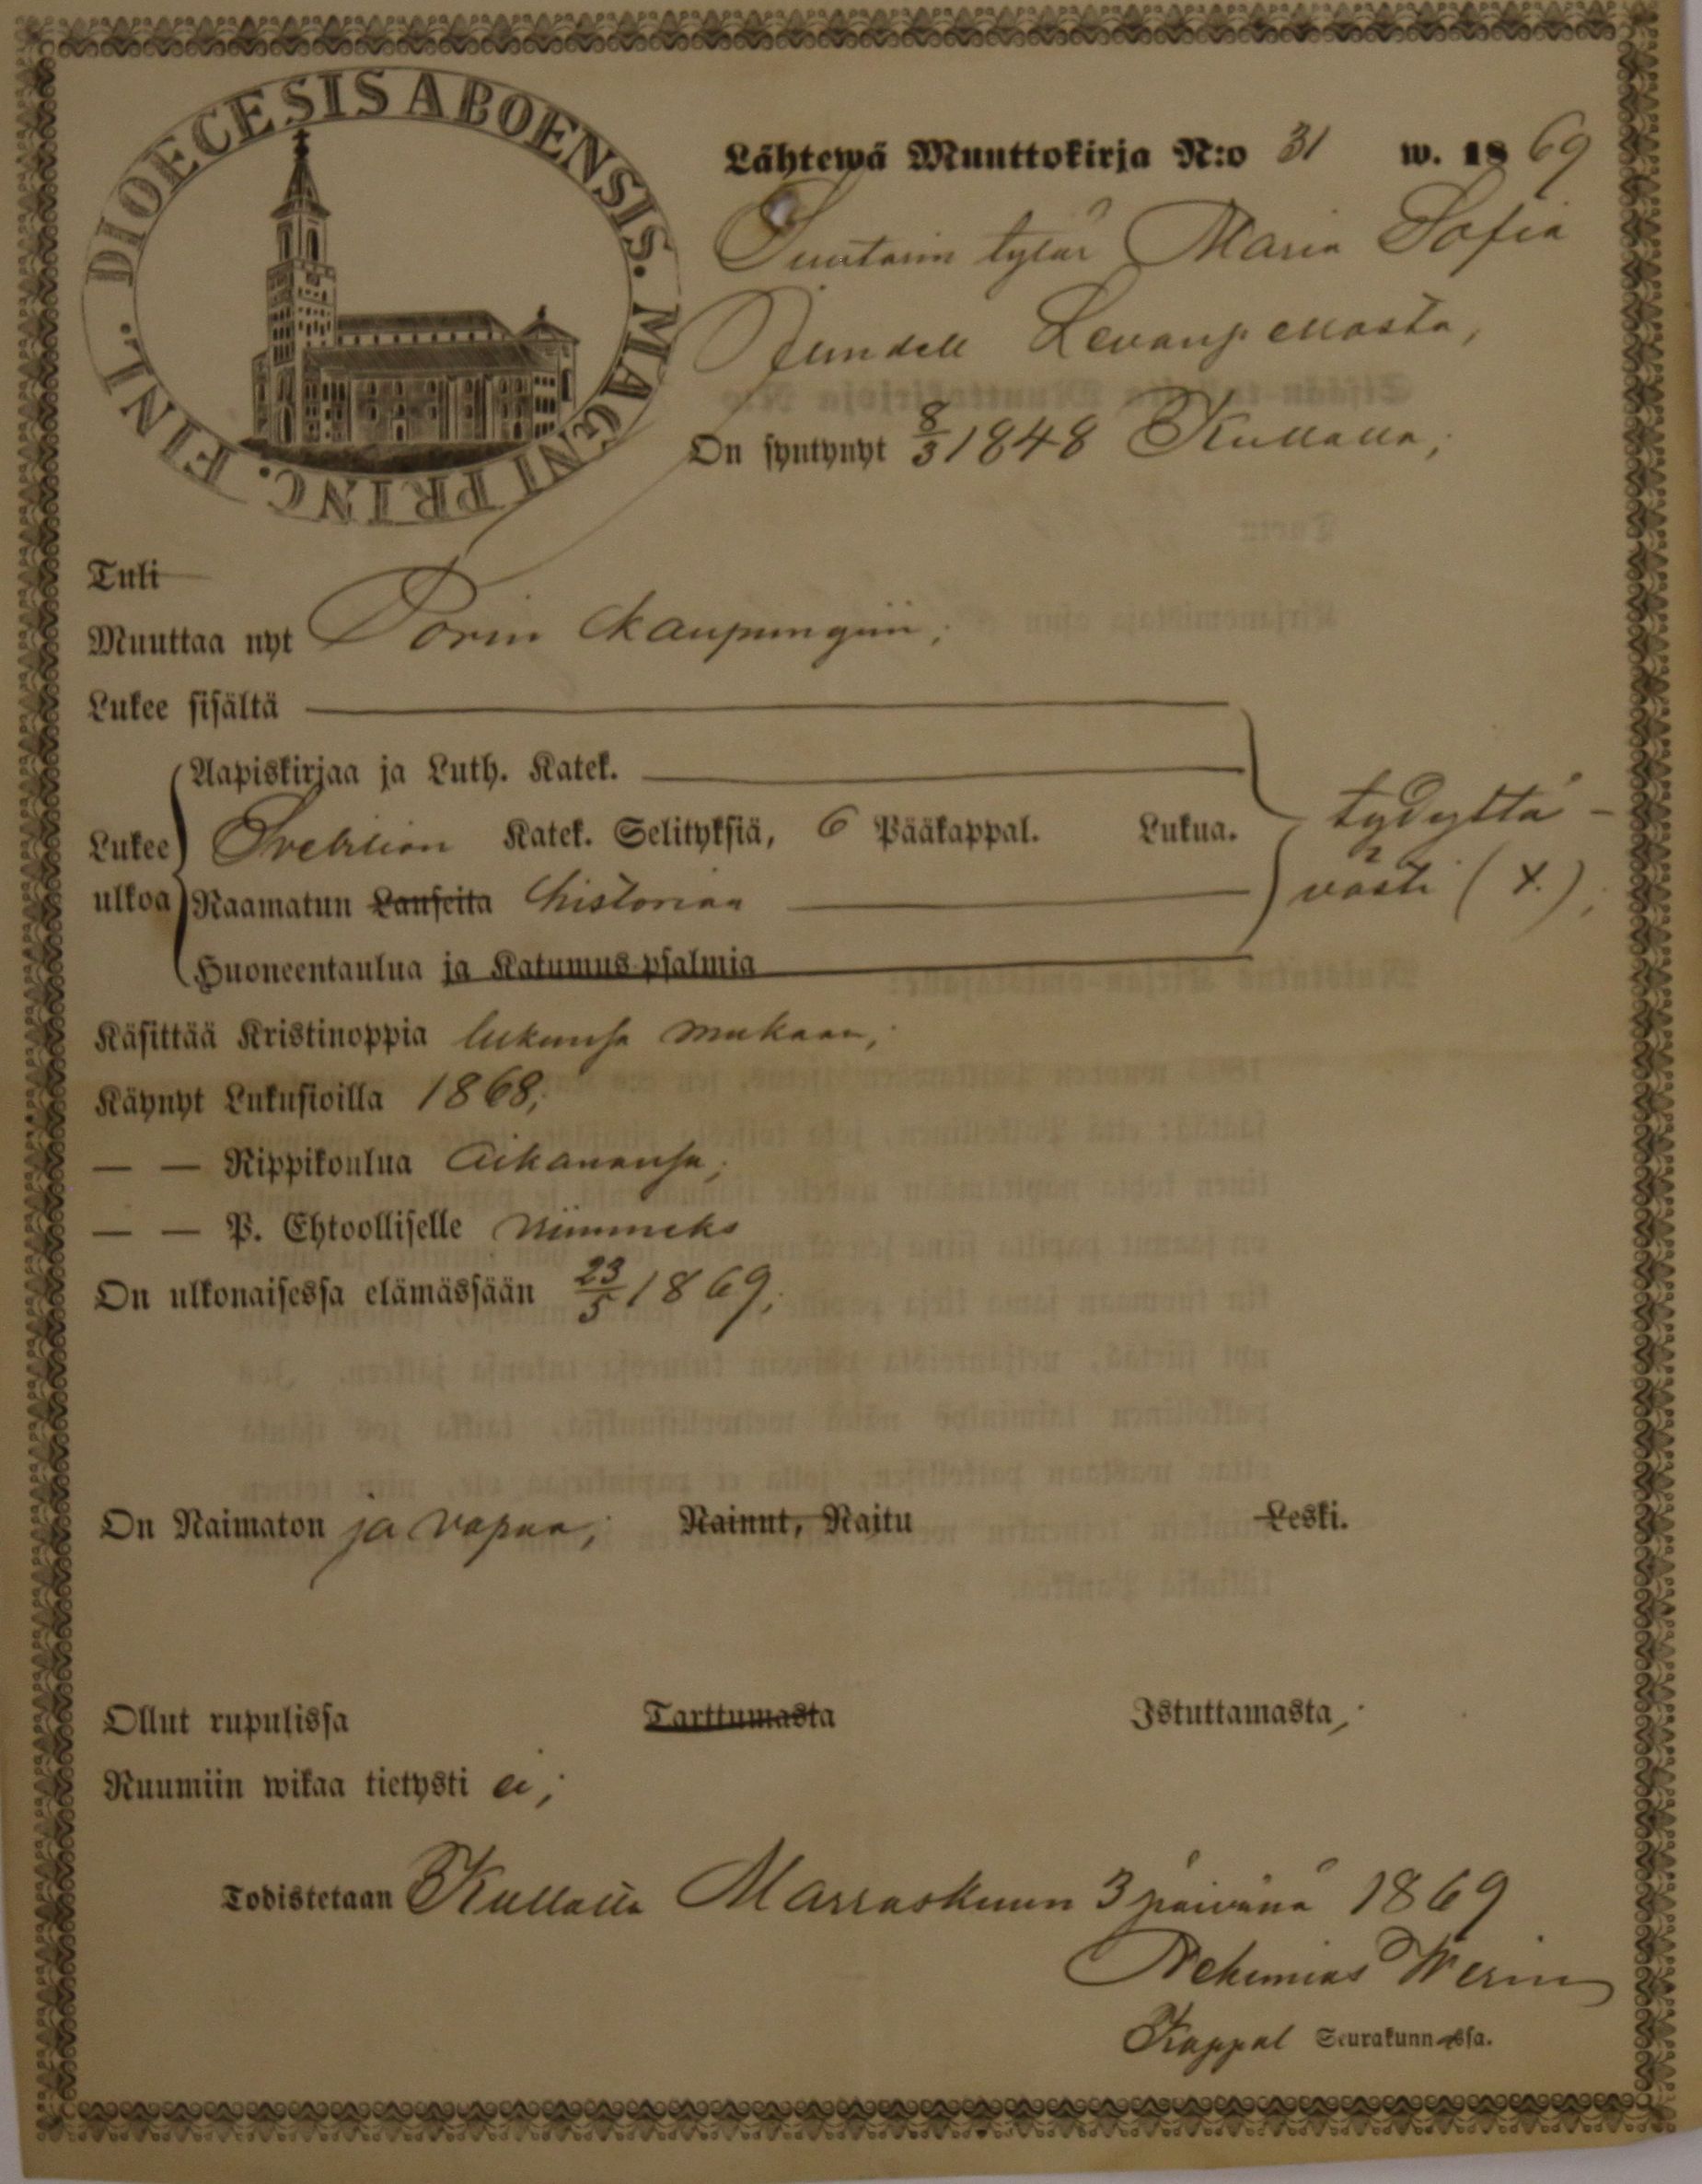 DIOECESIS ABOENSIS. MAGNI PRINC. FINL.
Lähtewä Muuttokirja N:o 31 w. 1869
Suutarin tytär Maria Sofia
Levanpellosta,
On syntynyt 8/3 1848 Kullaalla;
Tuli
Muuttaa nyt Porin kaupungiin;
Lukee sisältä
Aapiskirjaa ja Luth. Katek.
Lukee ulkoa Svebilion Katek. Selityksiä, 6 Pääkappal. Lukua.
tydyttä-
västi (x.);
Raamatun Lauseita historiaa
Huoneentaulua ja Katumus-psalmia
Käsittää Kristinoppia lukunsa mukaan;
Käynyt Lukusioilla 1868;
— — Rippikoulua Aikanansa;
— — P. Ehtoolliselle viimmeks
On ulkonaisessa elämässään 23/5 1869;
On Naimaton ja vapaa; Nainut, Naitu Leski.
Ollut rupulissa Tarttumasta Istuttamasta;
Ruumiin wikaa tietysti ei;
Todistetaan Kullaalla Marraskuun 3 päivänä 1869
Nehemias Werin
Kappal Seurakunnassa.